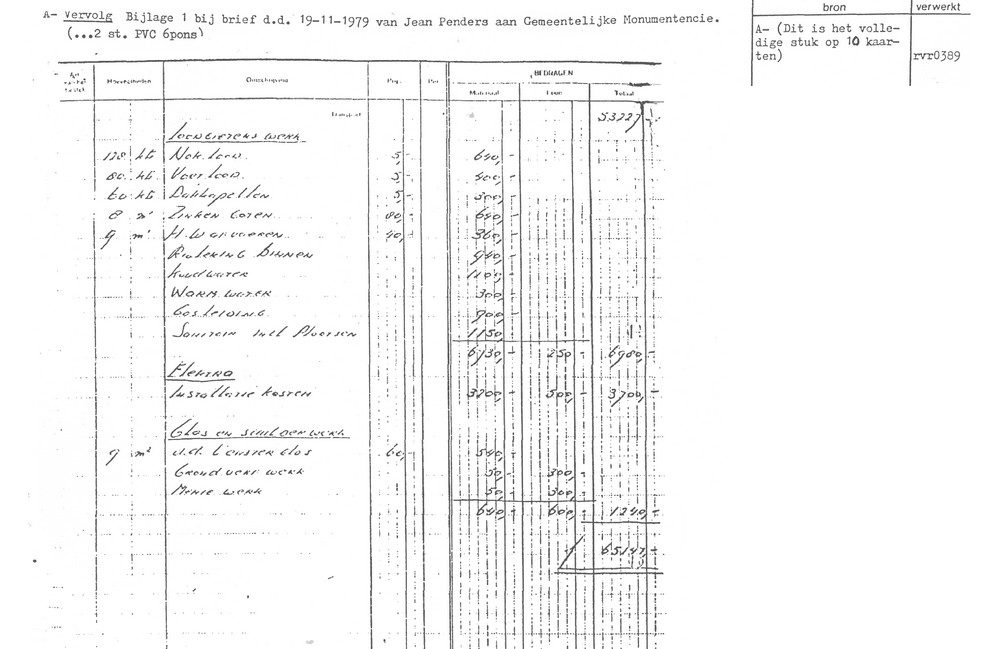 A- Vervolg Bijlage 1 bij brief d.d. 19-11-1979 van Jean Penders aan Gemeentelijke Monumentencie.
(...2 st. PVC 6pons)
bron verwerkt
A- (Dit is het volle-
dige stuk op 10 kaar-
ten) rvr0389
Hoeveelheden Omschrijving Prijs Per BEDRAGEN
Materiaal Loon Totaal
Transport 53227,-
Loodgieters werk
128 kg Nok lood 5,- 640,-
80 kg Voet lood 5,- 400,-
60 kg Dakkapellen 5,- 300,-
8 m' Zinken goten 80,- 640,-
9 m' H.W. afvoeren 40,- 360,-
Riolering binnen 940,-
Koudwater 1100,-
Warm water 300,-
Gasleiding 900,-
Sanitair incl 1150,-
6730,- 250,- 6980,-
Elektra
Installatie kosten 3200,- 500,- 3700,-
Glas en schilderwerk
9 m² d.d. venster glas 60,- 540,-
Grond verf werk 50,- 300,-
Menie werk 50,- 300,-
640,- 600,- 1240,-
65147,-